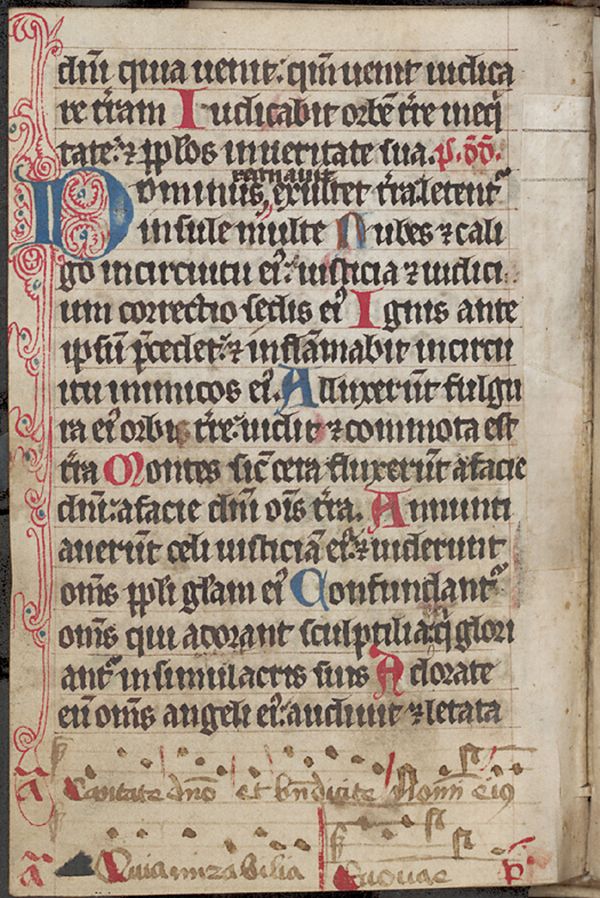 dn̄i quia uenit: qm̄ uenit iudica
re t̄ram Iudicabit orbē t̄re in eq̄
tate: ⁊ pp̄los in ueritate sua. p̄s. dd̄.
regnauit
Dominus, exultet t̄ra: letent᷑
insule multe Nubes ⁊ cali
go in circuitu eiꝰ: iusticia ⁊ iudici
um correctio sedis eiꝰ Ignis ante
ip̄sū p̄cedet: ⁊ inflāmabit in circu
itu inimicos eiꝰ. Alluxerūt fulgu
ra eiꝰ orbi t̄re: uidit ⁊ commota est
t̄ra Montes sic̄ cera fluxerūt a facie
dn̄i: a facie dn̄i oīs t̄ra. Annunti
auerūt celi iusticiā eiꝰ: ⁊ uiderunt
om̄s pp̄li gl̄am eiꝰ Confundant᷑
om̄s qui adorant sculptilia: q̄ glori
ant᷑ in simulacris suis Adorate
eū om̄s angeli eiꝰ: audiuit ⁊ letata
a̅ Cantate dn̄o et bn̄dicite Nomī eiꝰ
a̅ Quia mirabilia Euouae p̄s